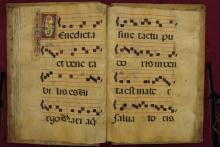 Benedicta
et vene ra
bi lis es Vi
rgo Mari a q
sine tactu pu
do ris in ven
ta est mate r
salva to ris